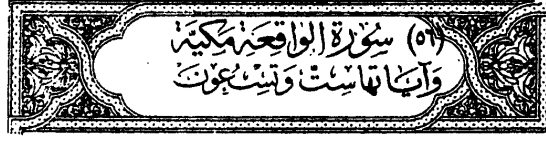 (٥٦) سُورَةُ الوَاقِعَةِ مَكيَّة
وَآيَاتُهَا سِتٌّ وَتِسْعُونَ